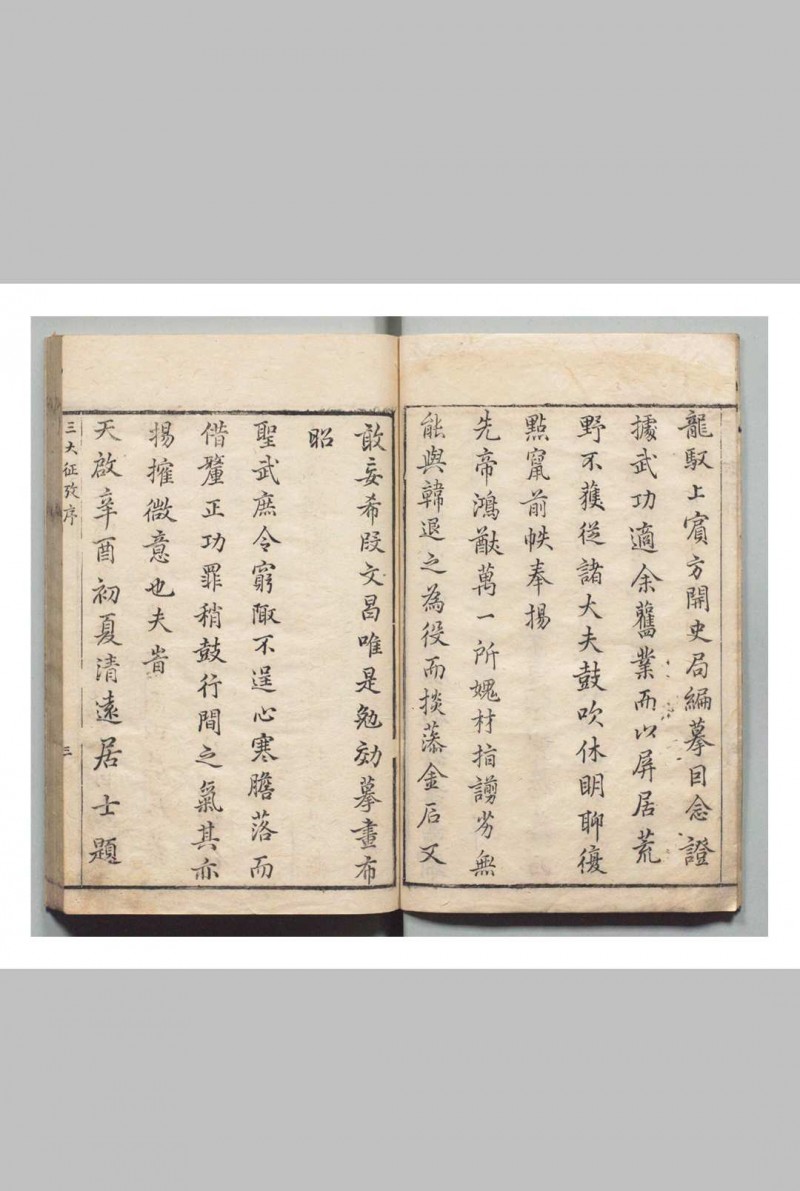 龍馭上賓方開史局編摹囙念證
據武功適余舊業而以屏居荒
野不獲從諸大夫鼓吹休明聊復
點竄前帙奉揚
先帝鴻猷萬一所媿材掐謭劣無
能與韓退之為役而掞藻金石又
敢妄希段文昌唯是勉効摹畫布
昭
聖武庶令窮陬不逞心寒膽落而
借釐正功罪稍鼓行間之氣其亦
揚搉微意也夫旹
天啟辛酉初夏清遠居士題
三大征攷序
三